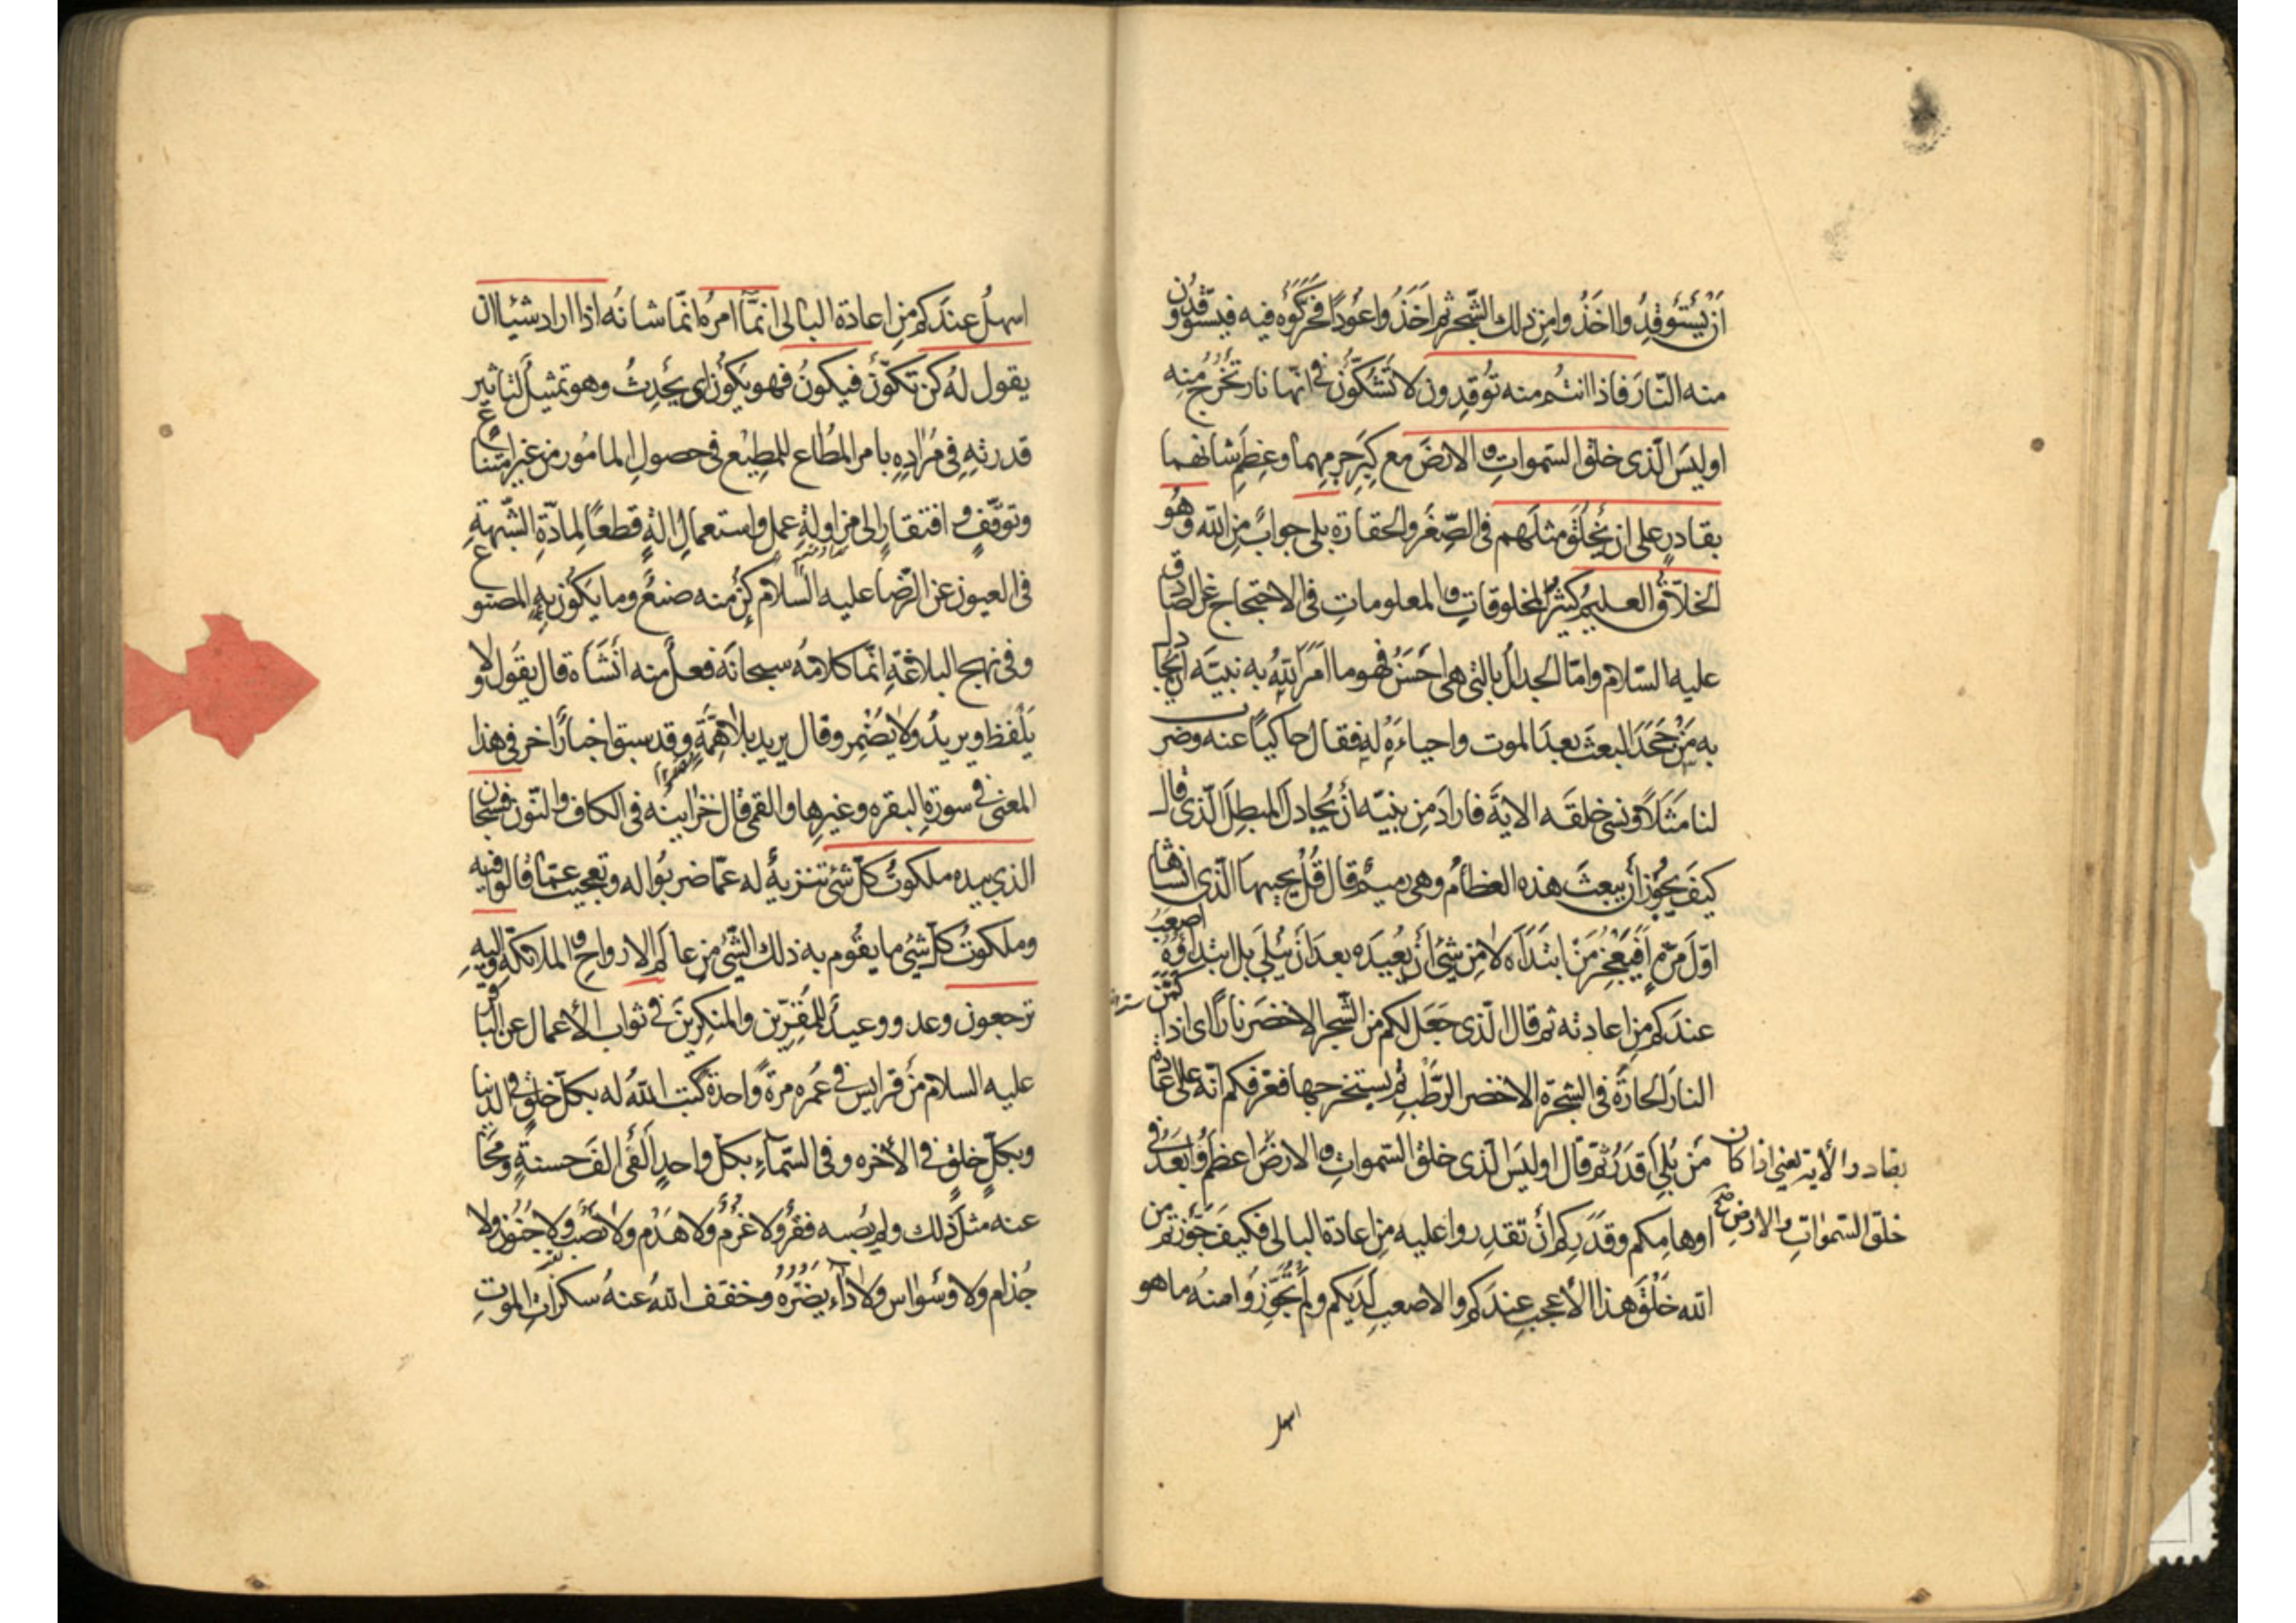 ان يستوقدوا اخذوا من ذلك الشجر ثم اخذوا عودا فحركوه فيه فيستوقدون
منه النار فاذا انتم منه توقدون لا تشكون في انها نار تخرج منه
اوليس الذى خلق السموات والارض مع كبر جرمهما وعظم شانهما
بقادر على ان يخلق مثلهم فى الصغر والحقارة بلى جواب من الله وهو
الخلاق العليم كثير المخلوقات والمعلومات فى الاحتجاج عن الصادق
عليه السلام وامّا الجدال بالتى هى احسن فهو ما امر الله به نبيه ان يجادل
به من جحد البعث بعد الموت واحياءه له فقال حاكيا عنه وضرب
لنا مثلا ونسى خلقه الاية فاراد من نبيّه أن يجادل المبطل الّذى قال
كيف يجوز أن يبعث هذه العظام وهى رميم قال قل يحييها الّذى انشاها
اوّل مرّة أفيعجز من ابتدأه لا من شئ أن يعيده بعد أن يبلى بل ابتداؤه اصعب
عندكم من اعادته ثم قال الّذى جعل لكم من الشجر الاخضر نارا اى اذا كمن
النار الحارة فى الشجرة الاخضر الرّطب ثم يستخرجها فعرّفكم انّه على اعادة
من بلى اقدر ثم قال اوليس الّذى خلق السّموات والارض اعظم وابعد فى
بقادر الأية يعنى اذا كان
خلق السّموات والارض
اوهامكم وقدركم أن تقدروا عليه من اعادة البالى فكيف جوّزتم من
الله خلق هذا الأعجب عندكم والاصعب لديكم ولم تجوّزوا منه ما هو
اسهل
اسهل عندكم من اعادة البالى انمّا امره انّما شانه اذا اراد شيئا ان
يقول له كن تكوّن فيكون فهو يكون اى يحدث وهو تمثيل لتاثير
قدرته فى مراده بامر المطاع للمطيع فى حصول المامور من غير امتناع
وتوقّف وافتقار الى مزاولة عمل واستعمال الة قطعا لمادّة الشّبهة
فى العيون عن الرّضا عليه السّلام كن منه صنع وما يكون به المصنوع
وفى نهج البلاغة انّما كلامه سبحانه فعل منه انشأه قال يقول ولا
يلفظ ويريد ولا يضمر وقال يريد بلا همّة وقد سبق اخبار اخر فى هذا
المعنى فى سورة البقره وغيرها والقمى قال خزاينه فى الكاف والنّون فسبحان
الذى بيده ملكوت كلّ شئ تنزيه له عمّا ضربوا له وتعجيب عمّا قالوا فيه
وملكوت كلّ شيئ ما يقوم به ذلك الشّئ من عالم الارواح والملائكة واليه
ترجعون وعد ووعيد للمقرّين والمنكرين فى ثواب الأعمال عن الباقر
عليه السلام من قرا يس فى عمره مرّة واحدة كتب الله له بكلّ خلق فى الدنيا
وبكلّ خلق فى الأخره وفى السّماء بكلّ واحد ألفى الف حسنة ومحا
عنه مثل ذلك ولم يصبه فقر ولا غرم ولا هدم ولا نصب ولا جنون ولا
جذام ولا وسواس ولا داء يضرّه وخفّف الله عنه سكرات الموت